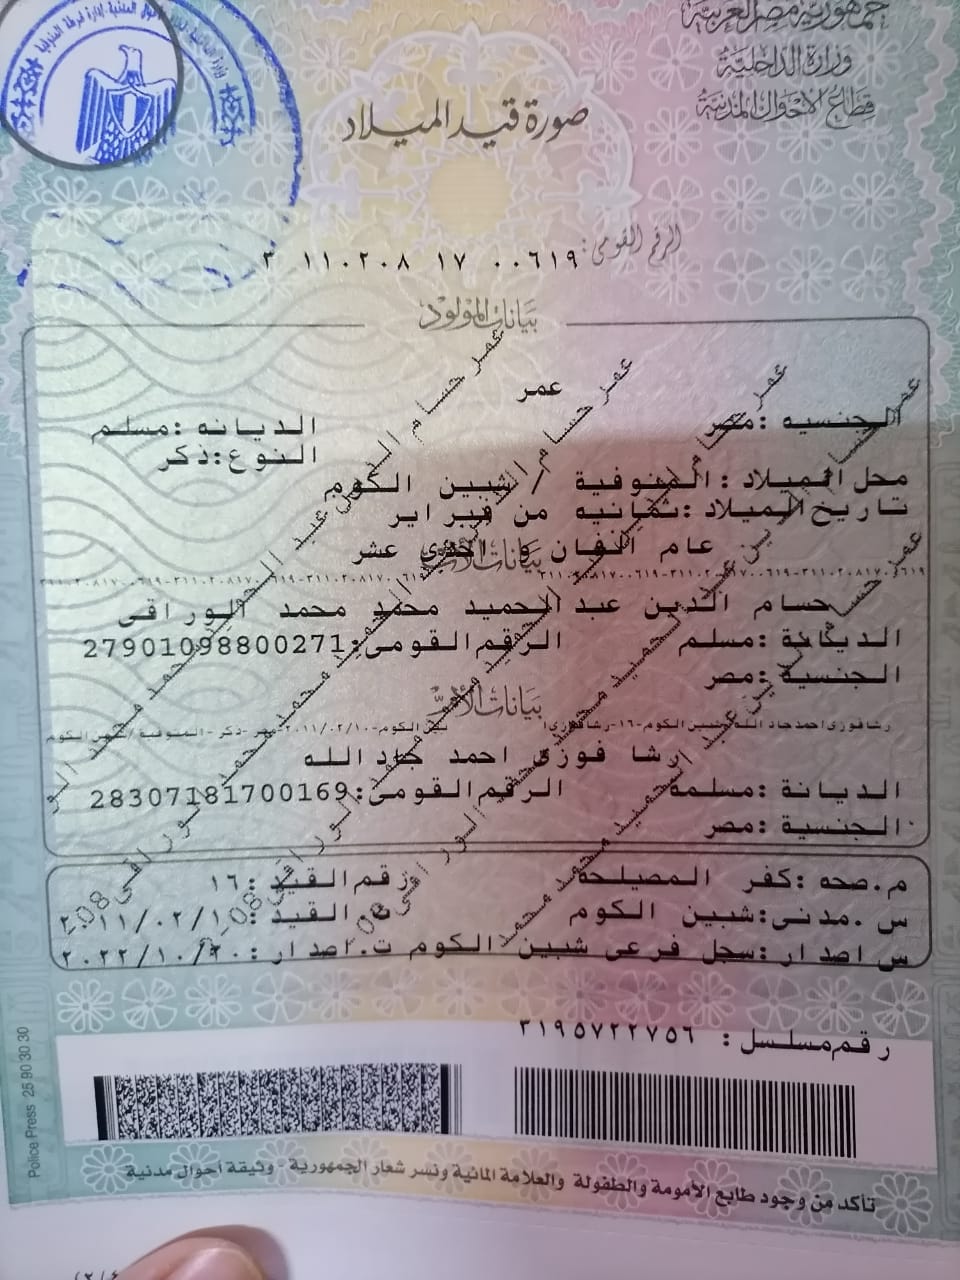 جمهورية مصر العربية
وزارة الداخلية
قطاع الأحوال المدنية
صورة قيد الميلاد
الرقم القومى: ٣ ١١٠٢٠٨ ١٧ ٠٠٦١٩
بيانات المولود
عمر
الجنسيه :مصر الديانه :مسلم
النوع:ذكر
محل الميلاد : المنوفية / شبين الكوم
تاريخ الميلاد :ثمانيه من فبراير
عام الفان و احدى عشر
بيانات الأب
حسام الدين عبد الحميد محمد محمد الوراقى
الديانة :مسلم الرقم القومى:27901098800271
الجنسية :مصر
بيانات الأم
رشا فوزى احمد جاد الله
الديانة :مسلمة الرقم القومى:28307181700169
الجنسية :مصر
م.صحه :كفر المصيلحة رقم القيد :١٦
س.مدنى:شبين الكوم ت القيد :٢٠١١/٠٢/١٠
س اصدار :سجل فرعى شبين الكوم ت.اصدار :٢٠٢٢/١٠/٢٠
رقم مسلسل : ٣١٩٥٧٢٢٧٥٦
Police Press 25 90 30 30
تأكد من وجود طابع الأمومة والطفولة والعلامة المائية ونسر شعار الجمهورية - وثيقة أحوال مدنية